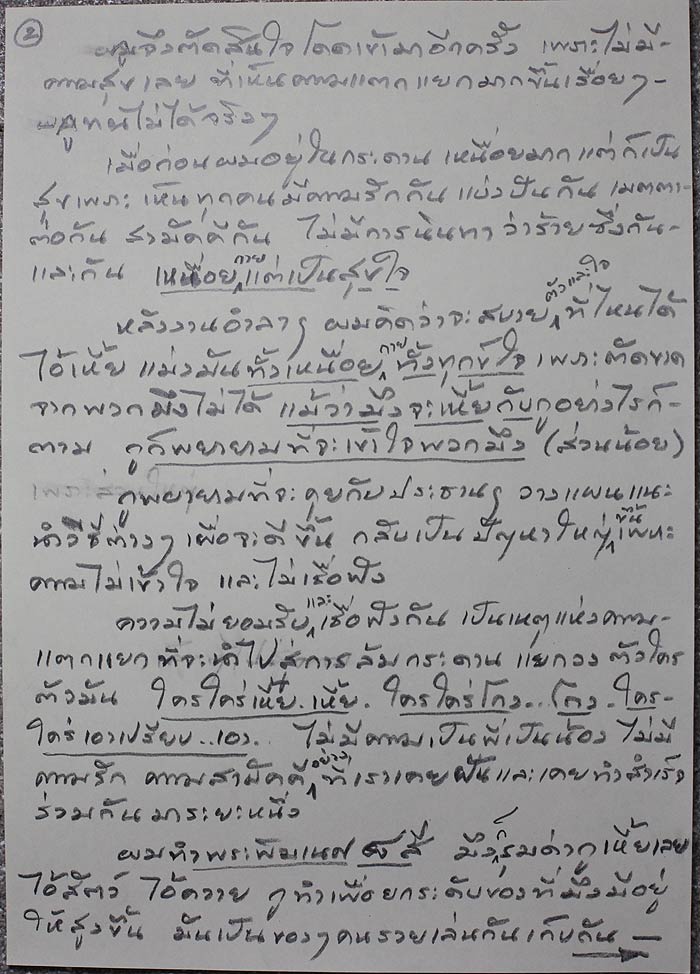 ②
ผมจึงตัดสินใจโดดเข้ามาอีกครั้ง เพราะไม่มี-
ความสุขเลย ที่เห็นความแตกแยกมากขึ้นเรื่อยๆ-
ผมทนไม่ได้จริงๆ
เมื่อก่อนผมอยู่ในกระดาน เหนื่อยมากแต่ก็เป็น
สุขเพราะ เห็นทุกคนมีความรักกัน แบ่งปันกัน เมตตา-
ต่อกัน สามัคคีกัน ไม่มีการนินทาว่าร้ายซึ่งกัน-
และกัน เหนื่อยกายแต่เป็นสุขใจ
หลังงานอำลาๆ ผมคิดว่าจะสบายตัวและใจที่ไหนได้
ไอ้เหี้ย แม่งมันทั้งเหนื่อยกายทั้งทุกข์ใจ เพราะตัดขาด
จากพวกมึงไม่ได้ แม้ว่ามึงจะเหี้ยกับกูอย่างไรก็-
ตาม กูก็พยายามที่จะเข้าใจพวกมึง (ส่วนน้อย)
กูพยายามที่จะคุยกับประธานๆ วางแผนแนะ
นำวิธีต่างๆ เพื่อจะดีขึ้น กลับเป็นปัญหาใหญ่ขึ้นเพราะ
ความไม่เข้าใจ และไม่เชื่อฟัง
ความไม่ยอมรับและเชื่อฟังกัน เป็นเหตุแห่งความ-
แตกแยกที่จะนำไปสู่การล้มกระดาน แยกวง ตัวใคร
ตัวมัน ใครใคร่เหี้ย..เหี้ย. ใครใคร่โกง...โกง. ใคร-
ใคร่เอาเปรียบ..เอา.. ไม่มีความเป็นพี่เป็นน้อง ไม่มี
ความรัก ความสามัคคีอย่างที่เราเคยฝันและเคยทำสำเร็จ
ร่วมกันมาระยะหนึ่ง
ผมทำพระพิฆเนศ ๕ สี มึงก็รุมด่ากูเหี้ยเลย
ไอ้สัตว์ ไอ้ควาย กูทำเพื่อยกระดับของที่มึงมีอยู่
ให้สูงขึ้น มันเป็นของๆคนรวยเล่นกันเก็บกัน